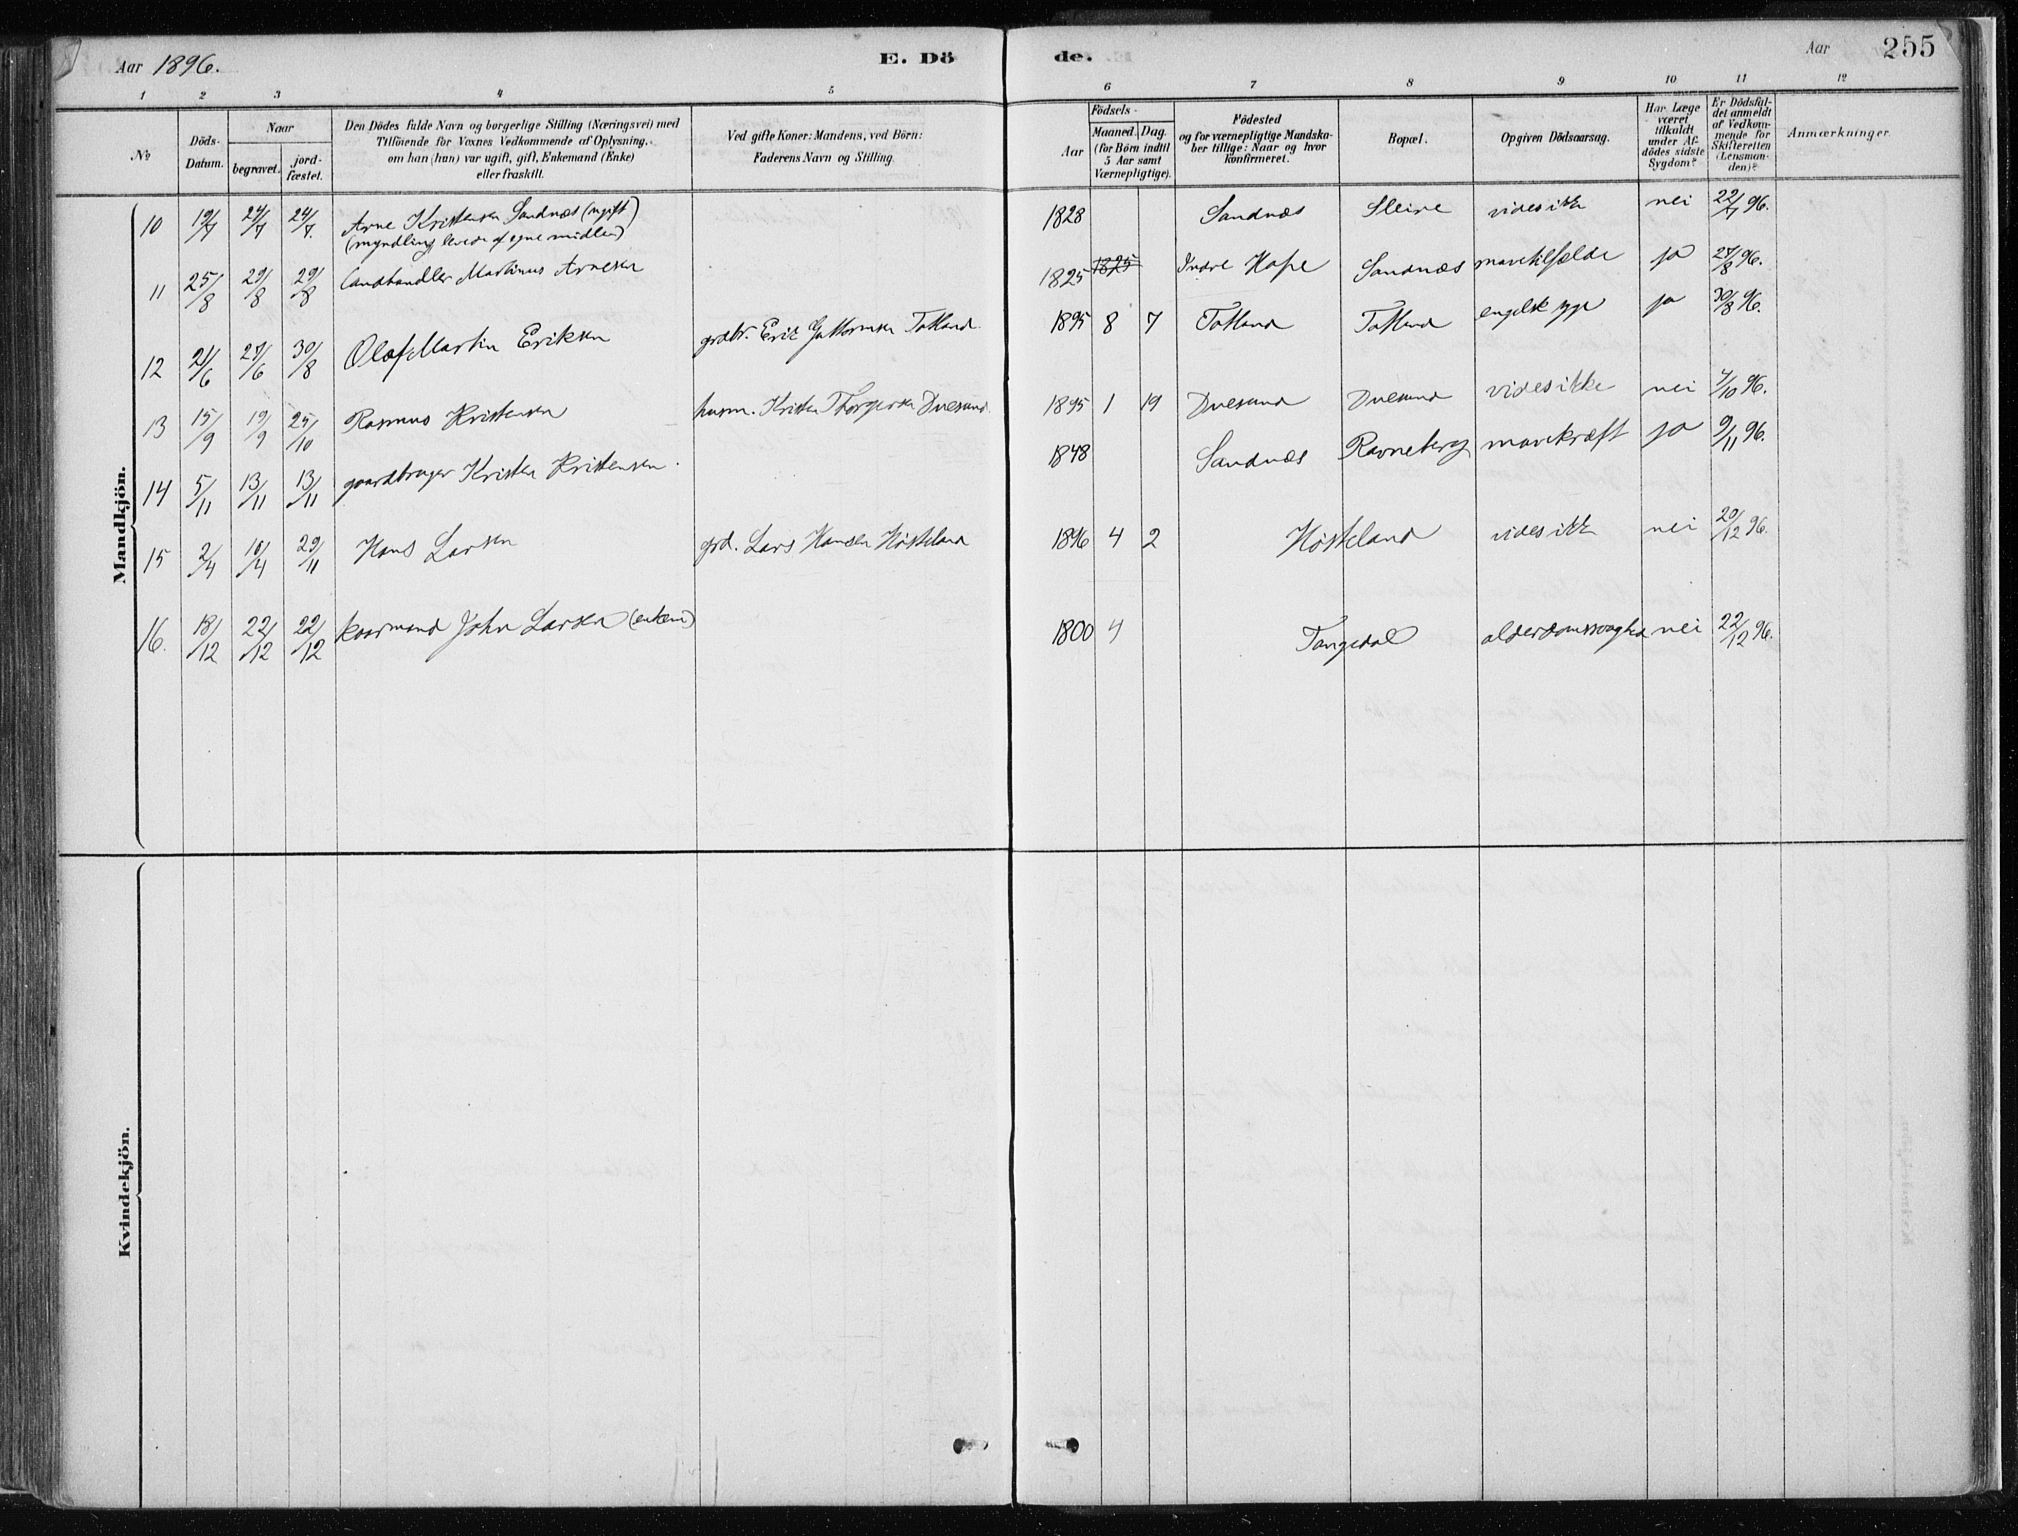 Aar 1896.
E. Dö
de.
Aar
255
1 2 3 4 5 6 7 8 9 10 11 12
№
Döds-
Datum.
Naar
begravet.
jord-
fæstet.
Den Dödes fulde Navn og borgerlige Stilling (Næringsvei) med
Tilföiende for Voxnes Vedkommende af Oplysning,
om han (hun) var ugift, gift, Enkemand (Enke)
eller fraskilt.
Ved gifte Koner: Mandens, ved Börn:
Faderens Navn og Stilling.
Födsels-
Aar
Maaned.
Dag.
(for Börn indtil
5 Aar samt
Værnepligtige).
Födested
og for værnepligtige Mandska-
ber tillige: Naar og hvor
konfirmeret.
Bopæl.
Opgiven Dödsaarsag.
Har Læge
været
tilkaldt
under Af-
dödes sidste
Sygdom?
Er Dödsfal-
det anmeldt
af Vedkom-
mende for
Skifteretten
(Lensman-
den)?
Anmærkninger.
Mandkjön.
10 19/7 24/7 24/7. Arne Kristensen Sandnæs (ugift) 1828 Sandnæs Sleire vides ikke nei 22/7 96.
(myndling, levede af egne midler)
11 25/8 29/8 29/8 Landhandler Martinus Arnesen 1825 1825 Indre Hope Sandnæs mavetilfælde ja 27/8 96.
12 21/6 27/6 30/8 Olaf Martin Eriksen grdbr. Erik Guttormsen Totland 1895 8 7 Totland Totland engelsk syge ja 30/8 96.
13 15/9 19/9 25/10 Rasmus Kristensen husm. Kristen Thorgersen Duesund. 1895 1 19 Duesund Duesund vides ikke nei 7/10 96.
14 5/11 13/11 13/11 gaardbruger Kristen Kristensen. 1848 Sandnæs Ravneberg mavekræft ja 9/11 96.
15 2/4 10/4 29/11 Hans Larsen grd. Lars Hansen Høsteland 1896 4 2 Høsteland vides ikke nei 20/12 96.
16. 18/12 22/12 22/12 kaarmand John Larsen (enkem) 1800 4 Tangedal alderdomssvaghed nei 22/12 96.
Kvindekjön.